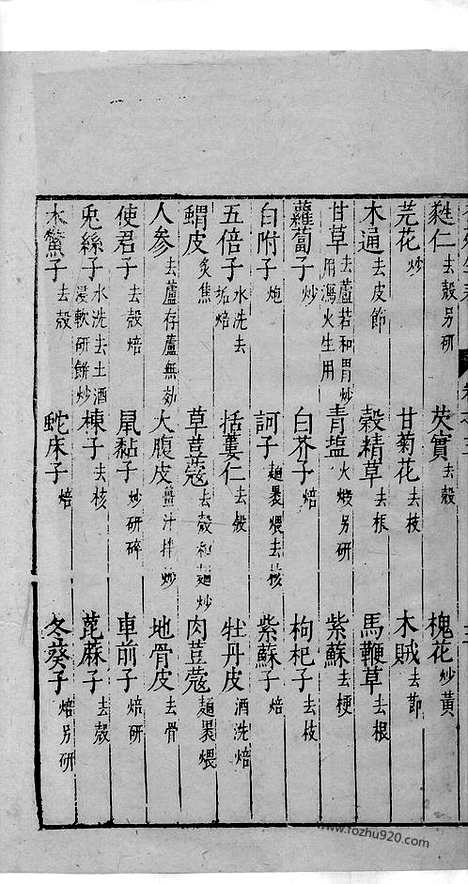 蕤仁去殼另研 芡實去殼 槐花炒黃
芫花炒 甘菊花去枝 木賊去節
木通去皮節 穀精草去根 馬鞭草去根
甘草去蘆若和胃炒用瀉火生用 青塩火煅另研 紫蘇去梗
蘿蔔子炒 白芥子焙 枸杞子去枝
白附子炮 訶子麺裹煨去核 紫蘇子焙
五倍子水洗去垢焙 括蔞仁去殼 牡丹皮酒洗焙
蝟皮炙焦 草荳蔻去殼和麺炒 肉荳蔻麺裹煨
人參去蘆存蘆無効 大腹皮藍汁拌炒 地骨皮去骨
使君子去殼焙 鼠黏子炒研碎 車前子焙研
兎絲子水洗去土酒浸軟研餅炒 楝子去核 蓖麻子去殼
木鱉子去殼 蛇床子焙 冬葵子焙另研
www.fozhu920.com